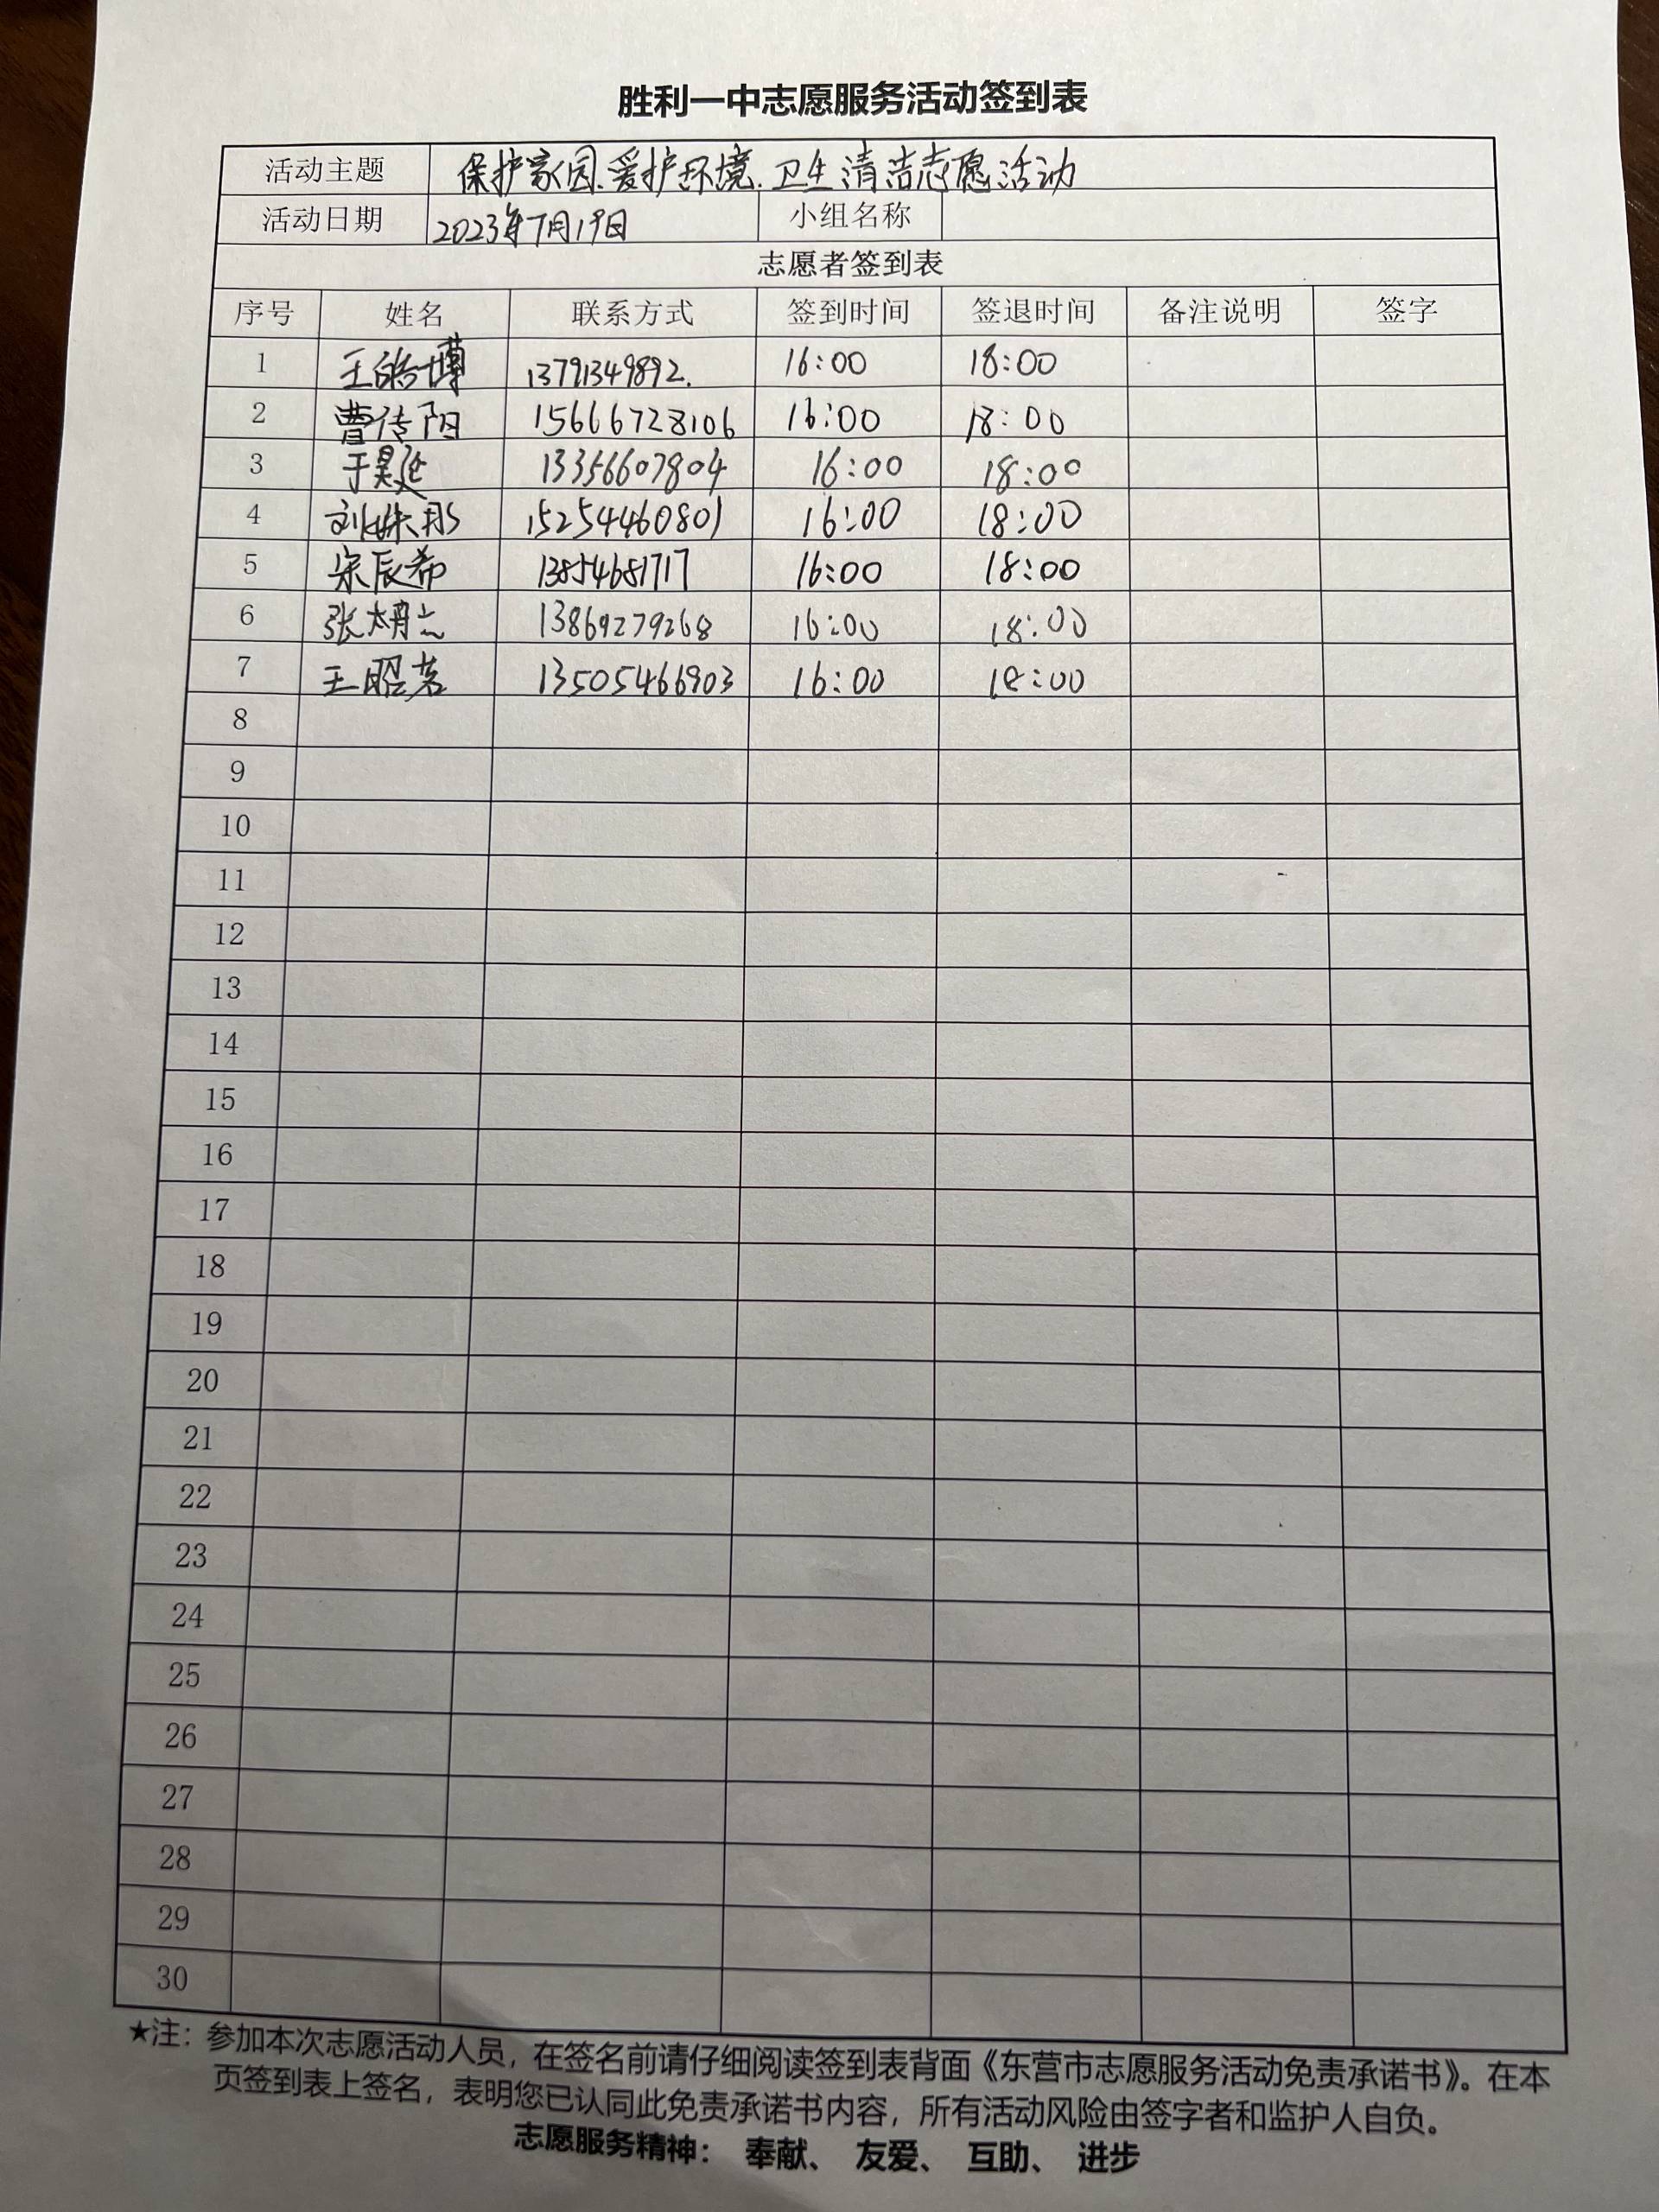 胜利一中志愿服务活动签到表
活动主题 保护家园.爱护环境.卫生清洁志愿活动
活动日期 2023年7月19日 小组名称
志愿者签到表
序号 姓名 联系方式 签到时间 签退时间 备注说明 签字
1 王皓博 13791349892. 16:00 18:00
2 曹传阳 15666728106 16:00 18:00
3 于昊延 13356607804 16:00 18:00
4 刘姝彤 15254460801 16:00 18:00
5 宋辰希 13854681717 16:00 18:00
6 张 13869279268 16:00 18:00
7 王昭茗 13505466903 16:00 18:00
8
9
10
11
12
13
14
15
16
17
18
19
20
21
22
23
24
25
26
27
28
29
30
★注：参加本次志愿活动人员，在签名前请仔细阅读签到表背面《东营市志愿服务活动免责承诺书》。在本
页签到表上签名，表明您已认同此免责承诺书内容，所有活动风险由签字者和监护人自负。
志愿服务精神： 奉献、 友爱、 互助、 进步